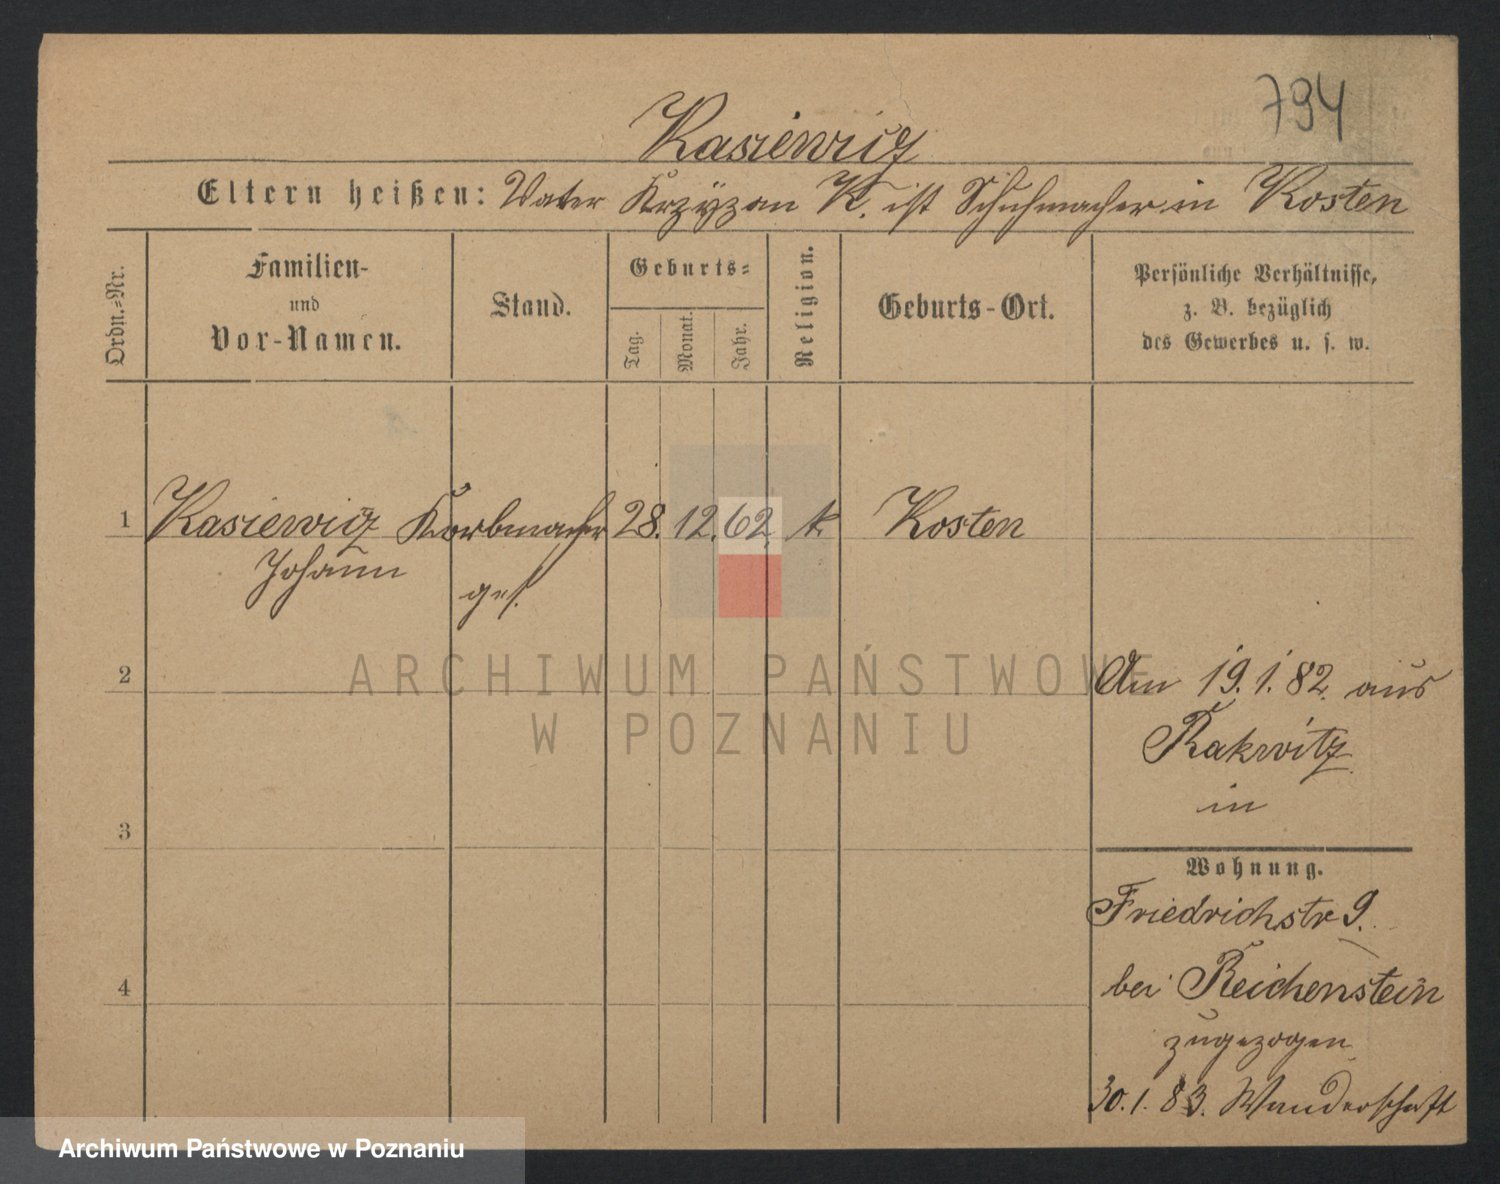 794
Kasiewicz
Eltern heißen: Vater Krzyzan K. ist Schuhmacher in Kosten
Ordn.-Nr.
Familien-
und
Vor-Namen.
Stand.
Geburts-
Tag.
Monat.
Jahr.
Religion.
Geburts-Ort.
Persönliche Verhältnisse,
z. B. bezüglich
des Gewerbes u. s. w.
1 Kasiewicz Korbmacher 28. 12. 62. k. Kosten
Johann ges.
2
Am 19.1.82. aus
Rakwitz
in
3
Wohnung.
Friedrichstr 9.
bei Reichenstein
4
zugezogen
30.1.83. Wanderschaft
ARCHIWUM PAŃSTWOWE
W POZNANIU
Archiwum Państwowe w Poznaniu